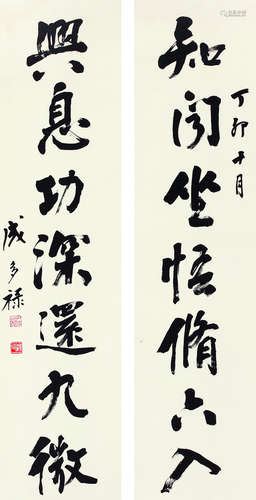 丁卯十月
知坐悟脩六入
興息功深還九微
成多祿